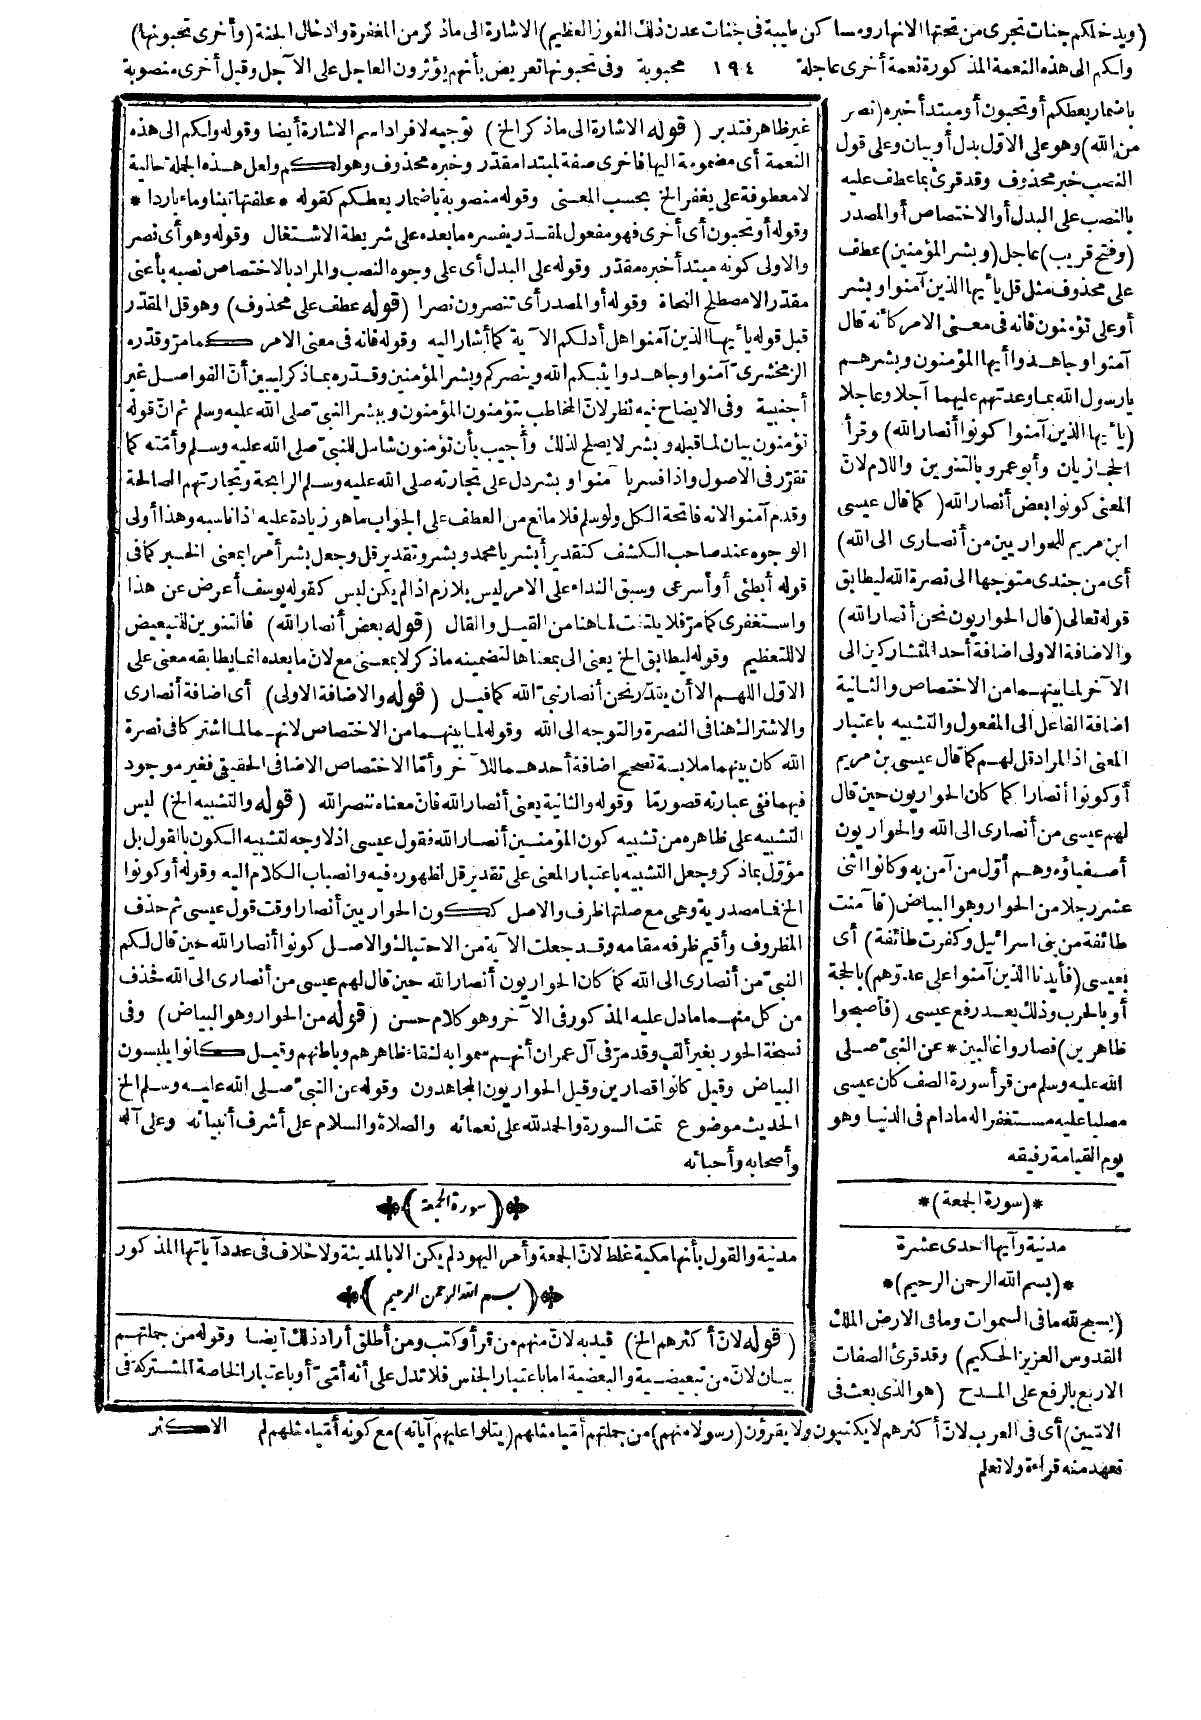 (ويدخلكم جنات تجرى من تحتها الانهار ومساكن طيبة فى جنات عدن ذلك الفوز العظيم) الاشارة الى ماذكر من المغفرة وادخال الجنة (وأخرى تحبونها)
ولكم الى هذه النعمة المذكورة نعمة أخرى عاجلة ١٩٤ محبوبة وفى تحبونها تعريض بأنهم يؤثرون العاجل على الآجل وقيل أخرى منصوبة
باضمار يعطكم أو تحبون أو مبتدأ خبره (نصر
من الله) وهو على الاول بدل أو بيان وعلى قول
النصب خبر محذوف وقد قرئ بما عطف عليه
بالنصب على البدل أو الاختصاص أو المصدر
(وفتح قريب) عاجل (وبشر المؤمنين) عطف
على محذوف مثل قل يأيها الذين آمنوا وبشر
أو على تؤمنون فانه فى معنى الامر كأنه قال
آمنوا وجاهدوا أيها المؤمنون وبشرهم
يارسول الله بما وعدتهم عليهما آجلا وعاجلا
(يأيها الذين آمنوا كونوا أنصار الله) وقرأ
الحجازيان وأبو عمرو بالتنوين واللام لان
المعنى كونوا بعض أنصار الله (كما قال عيسى
ابن مريم للحواريين من أنصارى الى الله)
أى من جندى متوجها الى نصرة الله ليطابق
قوله تعالى (قال الحواريون نحن أنصار الله)
والاضافة الاولى اضافة أحد المتشاركين الى
الآخر لما بينهما من الاختصاص والثانية
اضافة الفاعل الى المفعول والتشبيه باعتبار
المعنى اذ المراد قل لهم كما قال عيسى بن مريم
أو كونوا أنصارا كما كان الحواريون حين قال
لهم عيسى من أنصارى الى الله والحواريون
أصفياؤه وهم أول من آمن به وكانوا اثنى
عشر رجلا من الحوار وهو البياض (فآمنت
طائفة من بنى اسرائيل وكفرت طائفة) أى
بعيسى (فأيدنا الذين آمنوا على عدوهم) بالحجة
أو بالحرب وذلك بعد رفع عيسى (فأصبحوا
ظاهرين) فصاروا غالبين * عن النبى صلى
الله عليه وسلم من قرأ سورة الصف كان عيسى
مصليا عليه مستغفرا له مادام فى الدنيا وهو
يوم القيامة رفيقه
*(سورة الجمعة)*
مدنية وآيها احدى عشرة
*(بسم الله الرحمن الرحيم)*
(يسبح لله مافى السموات ومافى الارض الملك
القدوس العزيز الحكيم) وقد قرئ الصفات
الاربع بالرفع على المدح (هو الذى بعث فى
الاميين) أى فى العرب لان أكثرهم لايكتبون ولا يقرؤن (رسولا منهم) من جملتهم أميا مثلهم (يتلوا عليهم آياته) مع كونه أميا مثلهم لم
تعهد منه قراءة ولا تعلم
غير ظاهر فتدبر (قوله الاشارة الى ماذكر الخ) توجيه لافراد اسم الاشارة أيضا وقوله ولكم الى هذه
النعمة أى مضمومة اليها فاخرى صفة لمبتدا مقدر وخبره محذوف وهو لكم ولعل هذه الجملة حالية
لا معطوفة على يغفر الخ بحسب المعنى وقوله منصوبة باضمار يعطكم كقوله * علفتها تبنا وماء باردا *
وقوله أو تحبون أى أخرى فهو مفعول لمقدر يفسره مابعده على شريطة الاشتغال وقوله وهو أى نصر
والاولى كونه مبتدأ خبره مقدر وقوله على البدل أى على وجوه النصب والمراد بالاختصاص نصبه بأعنى
مقدر الا مصطلح النحاة وقوله أو المصدر أى تنصرون نصرا (قوله عطف على محذوف) وهو قل المقدر
قبل قوله يأيها الذين آمنوا هل أدلكم الآية كما أشار اليه وقوله فانه فى معنى الامر كما مر وقدره
الزمخشرى آمنوا وجاهدوا يثبكم الله وينصركم وبشر المؤمنين وقدره بماذكر ليبين أن الفواصل غير
أجنبية وفى الايضاح فيه نظر لان المخاطب بتؤمنون المؤمنون وببشر النبى صلى الله عليه وسلم ثم ان قوله
تؤمنون بيان لماقبله وبشر لايصلح لذلك وأجيب بأن تؤمنون شامل للنبى صلى الله عليه وسلم وأمته كما
تقرر فى الاصول واذا فسر بآمنوا وبشر دل على تجارته صلى الله عليه وسلم الرابحة وتجارتهم الصالحة
وقدم آمنوا لانه فاتحة الكل ولو سلم فلا مانع من العطف على الجواب ماهو زيادة عليه اذا ناسبه وهذا أولى
الوجوه عند صاحب الكشف كتقدير أبشر يا محمد وبشر وتقدير قل وجعل بشر أمرا بمعنى الخبر كما فى
قوله أبطئى أو أسرعى وسبق النداء على الامر ليس بلازم اذا لم يكن لبس كقوله يوسف أعرض عن هذا
واستغفرى كما مر فلا يلتفت لما هنا من القيل والقال (قوله بعض أنصار الله) فالتنوين للتبعيض
لا للتعظيم وقوله ليطابق الخ يعنى الى بمعناها لتضمينه ماذكر لا بمعنى مع لان مابعده انما يطابقه معنى على
الاول اللهم الا أن يقدر نحن أنصار نبى الله كما قيل (قوله والاضافة الاولى) أى اضافة أنصارى
والاشتراك هنا فى النصرة والتوجه الى الله وقوله لما بينهما من الاختصاص لانهما لما اشتركا فى نصرة
الله كان بينهما ملابسة تصحح اضافة أحدهما للآخر وأما الاختصاص الاضافى الحقيقى فغير موجود
فيهما ففى عبارته قصور ما وقوله والثانية يعنى أنصار الله فان معناه ننصر الله (قوله والتشبيه الخ) ليس
التشبيه على ظاهره من تشبيه كون المؤمنين أنصار الله بقول عيسى اذ لاوجه لتشبيه الكون بالقول بل
مؤول بماذكر وجعل التشبيه باعتبار المعنى على تقدير قل لظهوره فيه وانصباب الكلام اليه وقوله أو كونوا
الخ فما مصدرية وهى مع صلتها ظرف والاصل ككون الحواريين أنصارا وقت قول عيسى ثم حذف
المظروف وأقيم ظرفه مقامه وقد جعلت الآية من الاحتباك والاصل كونوا أنصار الله حين قال لكم
النبى من أنصارى الى الله كما كان الحواريون أنصار الله حين قال لهم عيسى من أنصارى الى الله فحذف
من كل منهما مادل عليه المذكور فى الآخر وهو كلام حسن (قوله من الحوار وهو البياض) وفى
نسخة الحور بغير ألف وقد مر فى آل عمران أنهم سموا به لنقاء ظاهرهم وباطنهم وقيل كانوا يلبسون
البياض وقيل كانوا قصارين وقيل الحواريون المجاهدون وقوله عن النبى صلى الله عليه وسلم الخ
الحديث موضوع تمت السورة والحمدلله على نعمائه والصلاة والسلام على أشرف أنبيائه وعلى آله
وأصحابه وأحبائه
(سورة الجمعة)
مدنية والقول بأنها مكية غلط لان الجمعة وأمر اليهود لم يكن الا بالمدينة ولا خلاف فى عدد آياتها المذكور
(بسم الله الرحمن الرحيم)
(قوله لان أكثرهم الخ) قيد به لان منهم من قرأ وكتب ومن أطلق أراد ذلك أيضا وقوله من جملتهم
بيان لان من تبعيضية والبعضية اما باعتبار الجنس فلا تدل على أنه أمى أو باعتبار الخاصة المشتركة فى
الاكثر